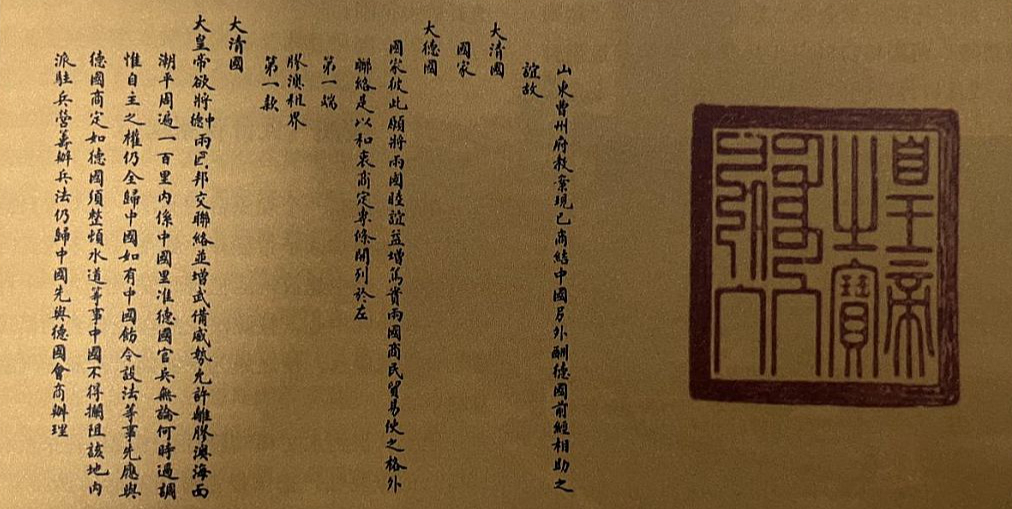 皇帝
之寶
山東曹州府教案現已商結中國另外酬德國前經相助之
誼故
大清國
國家
大德國
國家彼此願將兩國睦誼益增篤實兩國商民貿易使之格外
聯絡是以和衷商定專條開列於左
第一端
膠澳租界
第一款
大清國
大皇帝欲將中德兩國邦交聯絡並增武備威勢允許離膠澳海面
潮平周遍一百里內係中國里准德國官兵無論何時過調
惟自主之權仍全歸中國如有中國飭令設法等事先應與
德國商定如德國須整頓水道等事中國不得攔阻該地內
派駐兵營籌辦兵法仍歸中國先與德國會商辦理